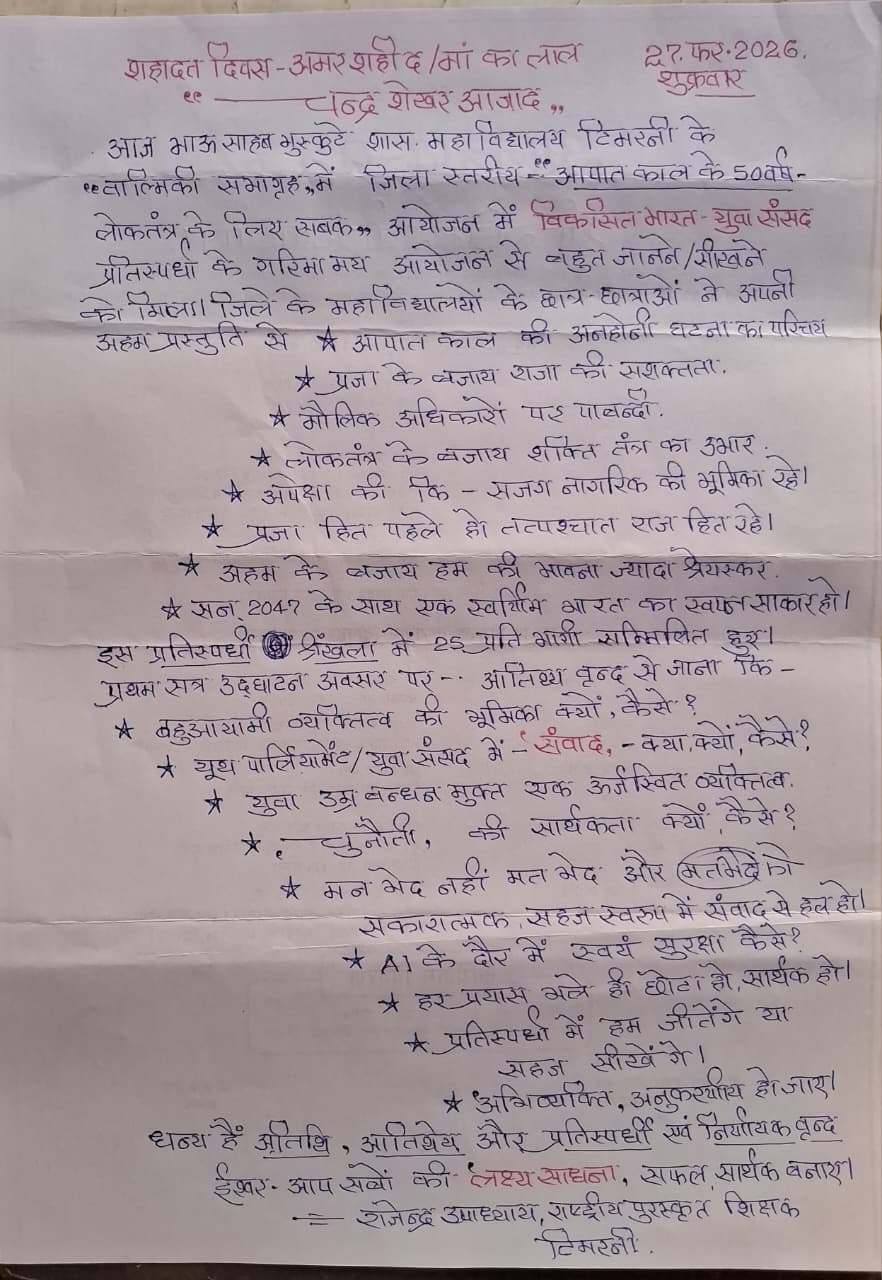 शहादत दिवस - अमर शहीद / मां का लाल 27. फर. 2026.
शुक्रवार
“ —— चन्द्र शेखर आजाद ”
आज भाऊ साहब भुस्कुटे शास. महाविद्यालय टिमरनी के
“वाल्मिकी सभागृह” में जिला स्तरीय - “आपात काल के 50 वर्ष -
लोकतंत्र के लिए सबक” आयोजन में विकसित भारत - युवा संसद
प्रतिस्पर्धा के गरिमा मय आयोजन से बहुत जानने/सीखने
को मिला। जिले के महाविद्यालयों के छात्र-छात्राओं ने अपनी
अहम प्रस्तुति से ★ आपात काल की अनहोनी घटना का परिचय
★ प्रजा के बजाय राजा की सशक्तता.
★ मौलिक अधिकारों पर पाबन्दी.
★ लोकतंत्र के बजाय शक्ति तंत्र का उभार.
★ अपेक्षा की कि - सजग नागरिक की भूमिका रहे।
★ प्रजा हित पहले हो तत्पश्चात राज हित रहे।
★ अहम के बजाय हम की भावना ज्यादा श्रेयस्कर.
★ सन् 2047 के साथ एक स्वर्णिम भारत का स्वप्न साकार हो।
इस प्रतिस्पर्धा श्रिंखला में 25 प्रति भागी सम्मिलित हुए।
प्रथम सत्र उद्घाटन अवसर पर -- आतिथ्य वृन्द से जाना कि -
★ बहुआयामी व्यक्तित्व की भूमिका क्यों, कैसे?
★ यूथ पार्लियामेंट/युवा संसद में - 'संवाद, - क्या, क्यों, कैसे?
★ युवा उम्र बन्धन मुक्त एक ऊर्जस्वित व्यक्तित्व.
★ ‘ — चुनौती, की सार्थकता क्यों, कैसे?
★ मन भेद नहीं मत भेद और मतभेद को
सकारात्मक, सहज स्वरुप में संवाद से हल हो।
★ AI के दौर में स्वयं सुरक्षा कैसे?
★ हर प्रयास भले ही छोटा हो, सार्थक हो।
★ प्रतिस्पर्धा में हम जीतेंगे या
सहज सीखेंगे।
★ 'अभिव्यक्ति, अनुकरणीय हो जाए।
धन्य हैं अतिथि, आतिथेय और प्रतिस्पर्धी एवं निर्णायक वृन्द
ईश्वर - आप सबों की 'लक्ष्य साधना, सफल, सार्थक बनाए।
= राजेन्द्र उपाध्याय, राष्ट्रीय पुरस्कृत शिक्षक
टिमरनी.